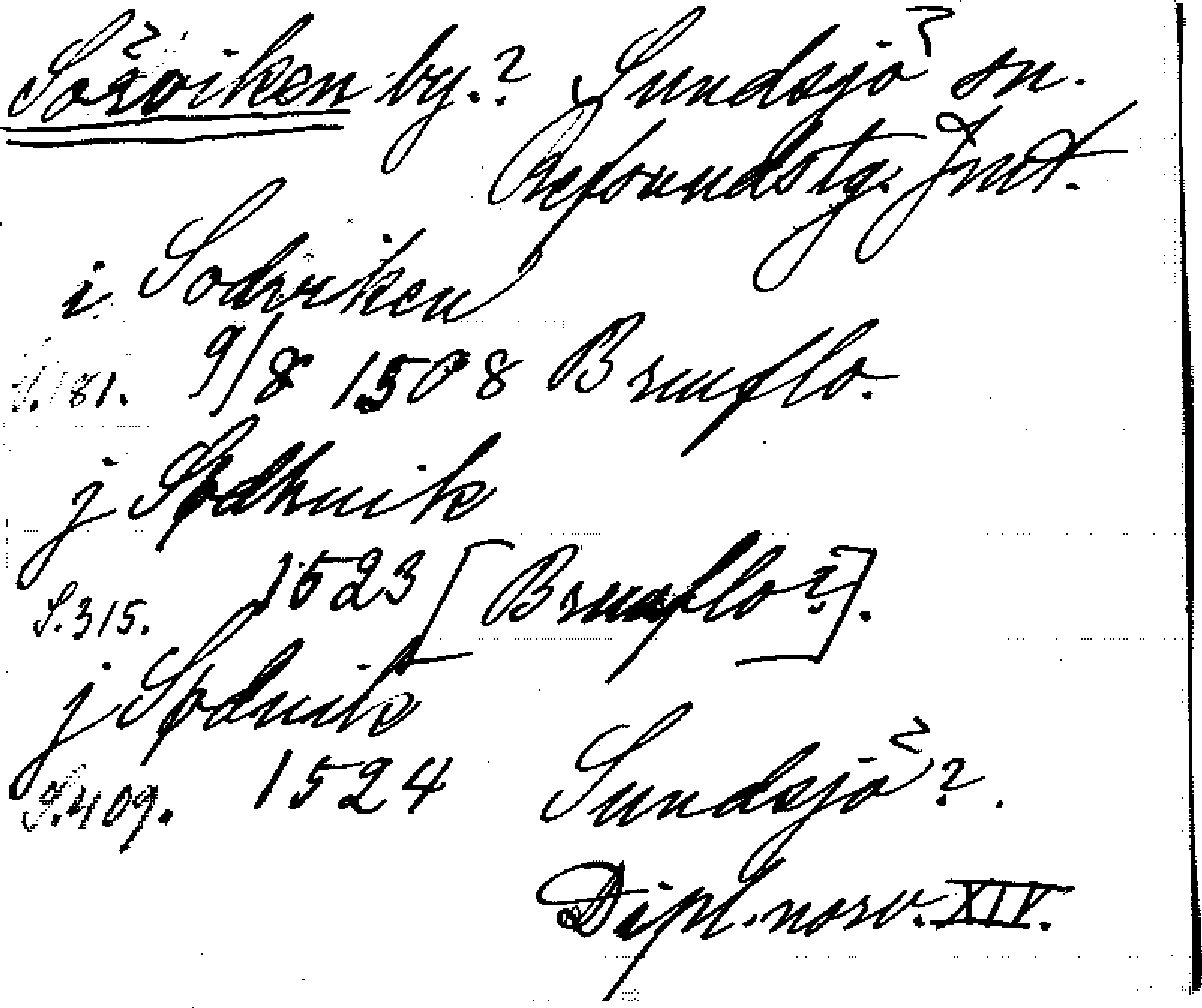 Sörviken by.? Sundsjö sn.
Refsundstg. Jmt.
i Sodviken
S.181. 9/8 1508 Brunflo.
j Sødhuik
S.315. 1523 [Brunflo?].
j Søduik
S.409. 1524 Sundsjö?.
Dipl. norv. XIV.